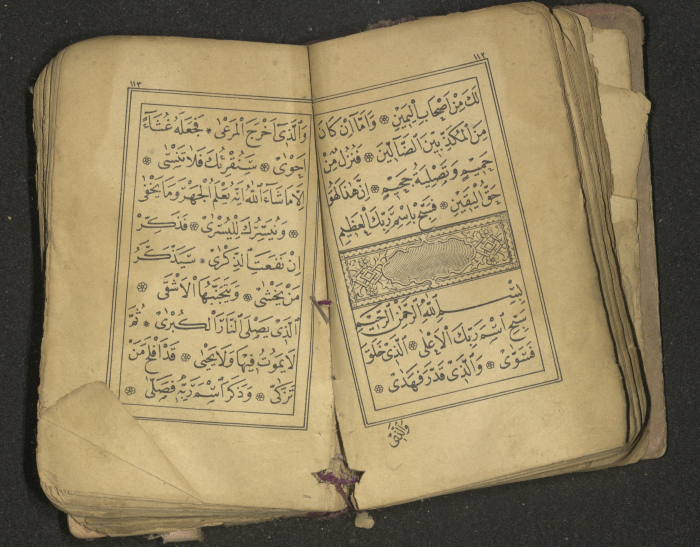 ١١٢
لَكَ مِنْ اَصْحَابِ الْيَمِينِ ۞ وَاَمَّا اِنْ كَانَ
مِنَ الْمُكَذِّبِينَ الضَّالِّينَ ۞ فَنُزُلٌ مِنْ
حَمِيمٍ وَتَصْلِيَةُ جَحِيمٍ ۞ اِنَّ هٰذَا لَهُوَ
حَقُّ الْيَقِينِ ۞ فَسَبِّحْ بِاسْمِ رَبِّكَ الْعَظِيمِ
بِسْمِ اللّٰهِ الرَّحْمٰنِ الرَّحِيمِ
سَبِّحِ اسْمَ رَبِّكَ الْاَعْلٰى ۞ الَّذِى خَلَقَ
فَسَوّٰى ۞ وَالَّذِى قَدَّرَ فَهَدٰى ۞
وَالَّذِى
١١٣
وَالَّذِى اَخْرَجَ الْمَرْعٰى ۞ فَجَعَلَهُ غُثَاءً
اَحْوٰى ۞ سَنُقْرِئُكَ فَلَا تَنْسٰى ۞
اِلَّا مَا شَاءَ اللّٰهُ اِنَّهُ يَعْلَمُ الْجَهْرَ وَمَا يَخْفٰى
۞ وَنُيَسِّرُكَ لِلْيُسْرٰى ۞ فَذَكِّرْ
اِنْ نَفَعَتِ الذِّكْرٰى ۞ سَيَذَّكَّرُ
مَنْ يَخْشٰى ۞ وَيَتَجَنَّبُهَا الْاَشْقٰى ۞
الَّذِى يَصْلَى النَّارَ الْكُبْرٰى ۞ ثُمَّ
لَا يَمُوتُ فِيهَا وَلَا يَحْيٰى ۞ قَدْ اَفْلَحَ مَنْ
تَزَكّٰى ۞ وَذَكَرَ اسْمَ رَبِّهِ فَصَلّٰى ۞